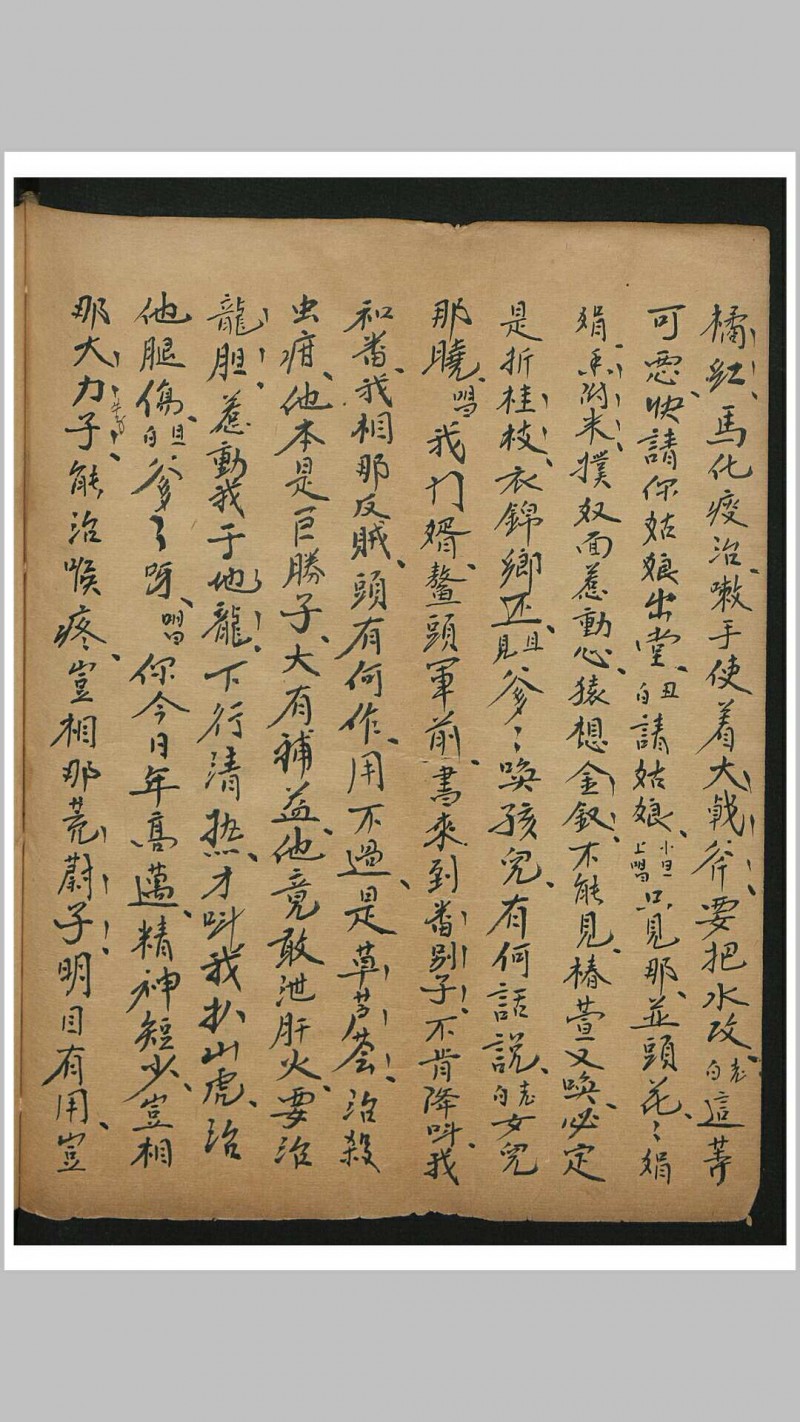 橘紅、馬化痰治嗽、手使着大戟斧、要把水攻、老白這等
可惡、快請你姑娘出堂、丑白請姑娘、小旦上唱只見那、並頭花、〻娟
娟、香附米、撲奴面惹動心猿想金釵、不能見、椿萱又喚、必定
是折桂枝、衣錦鄉还、旦見爹〻喚孩兒、有何話說、老白女兒
那曉、唱我门婿、鰲頭軍前、書來到番別子、不肯降呌我
和番、我相那反賊、頭有何作、用不過、是草芦薈、治殺
虫疳、他本是巨勝子、大有補益、他竟敢泄肝火、要治
龍胆、惹動我于地龍、下行清热、才呌我扒山虎、治
他腿傷、旦白爹〻呀、唱你今日年高邁、精神短少、豈相
那大力子牛旁、能治喉疼、豈相那茺蔚子、明目有用、豈